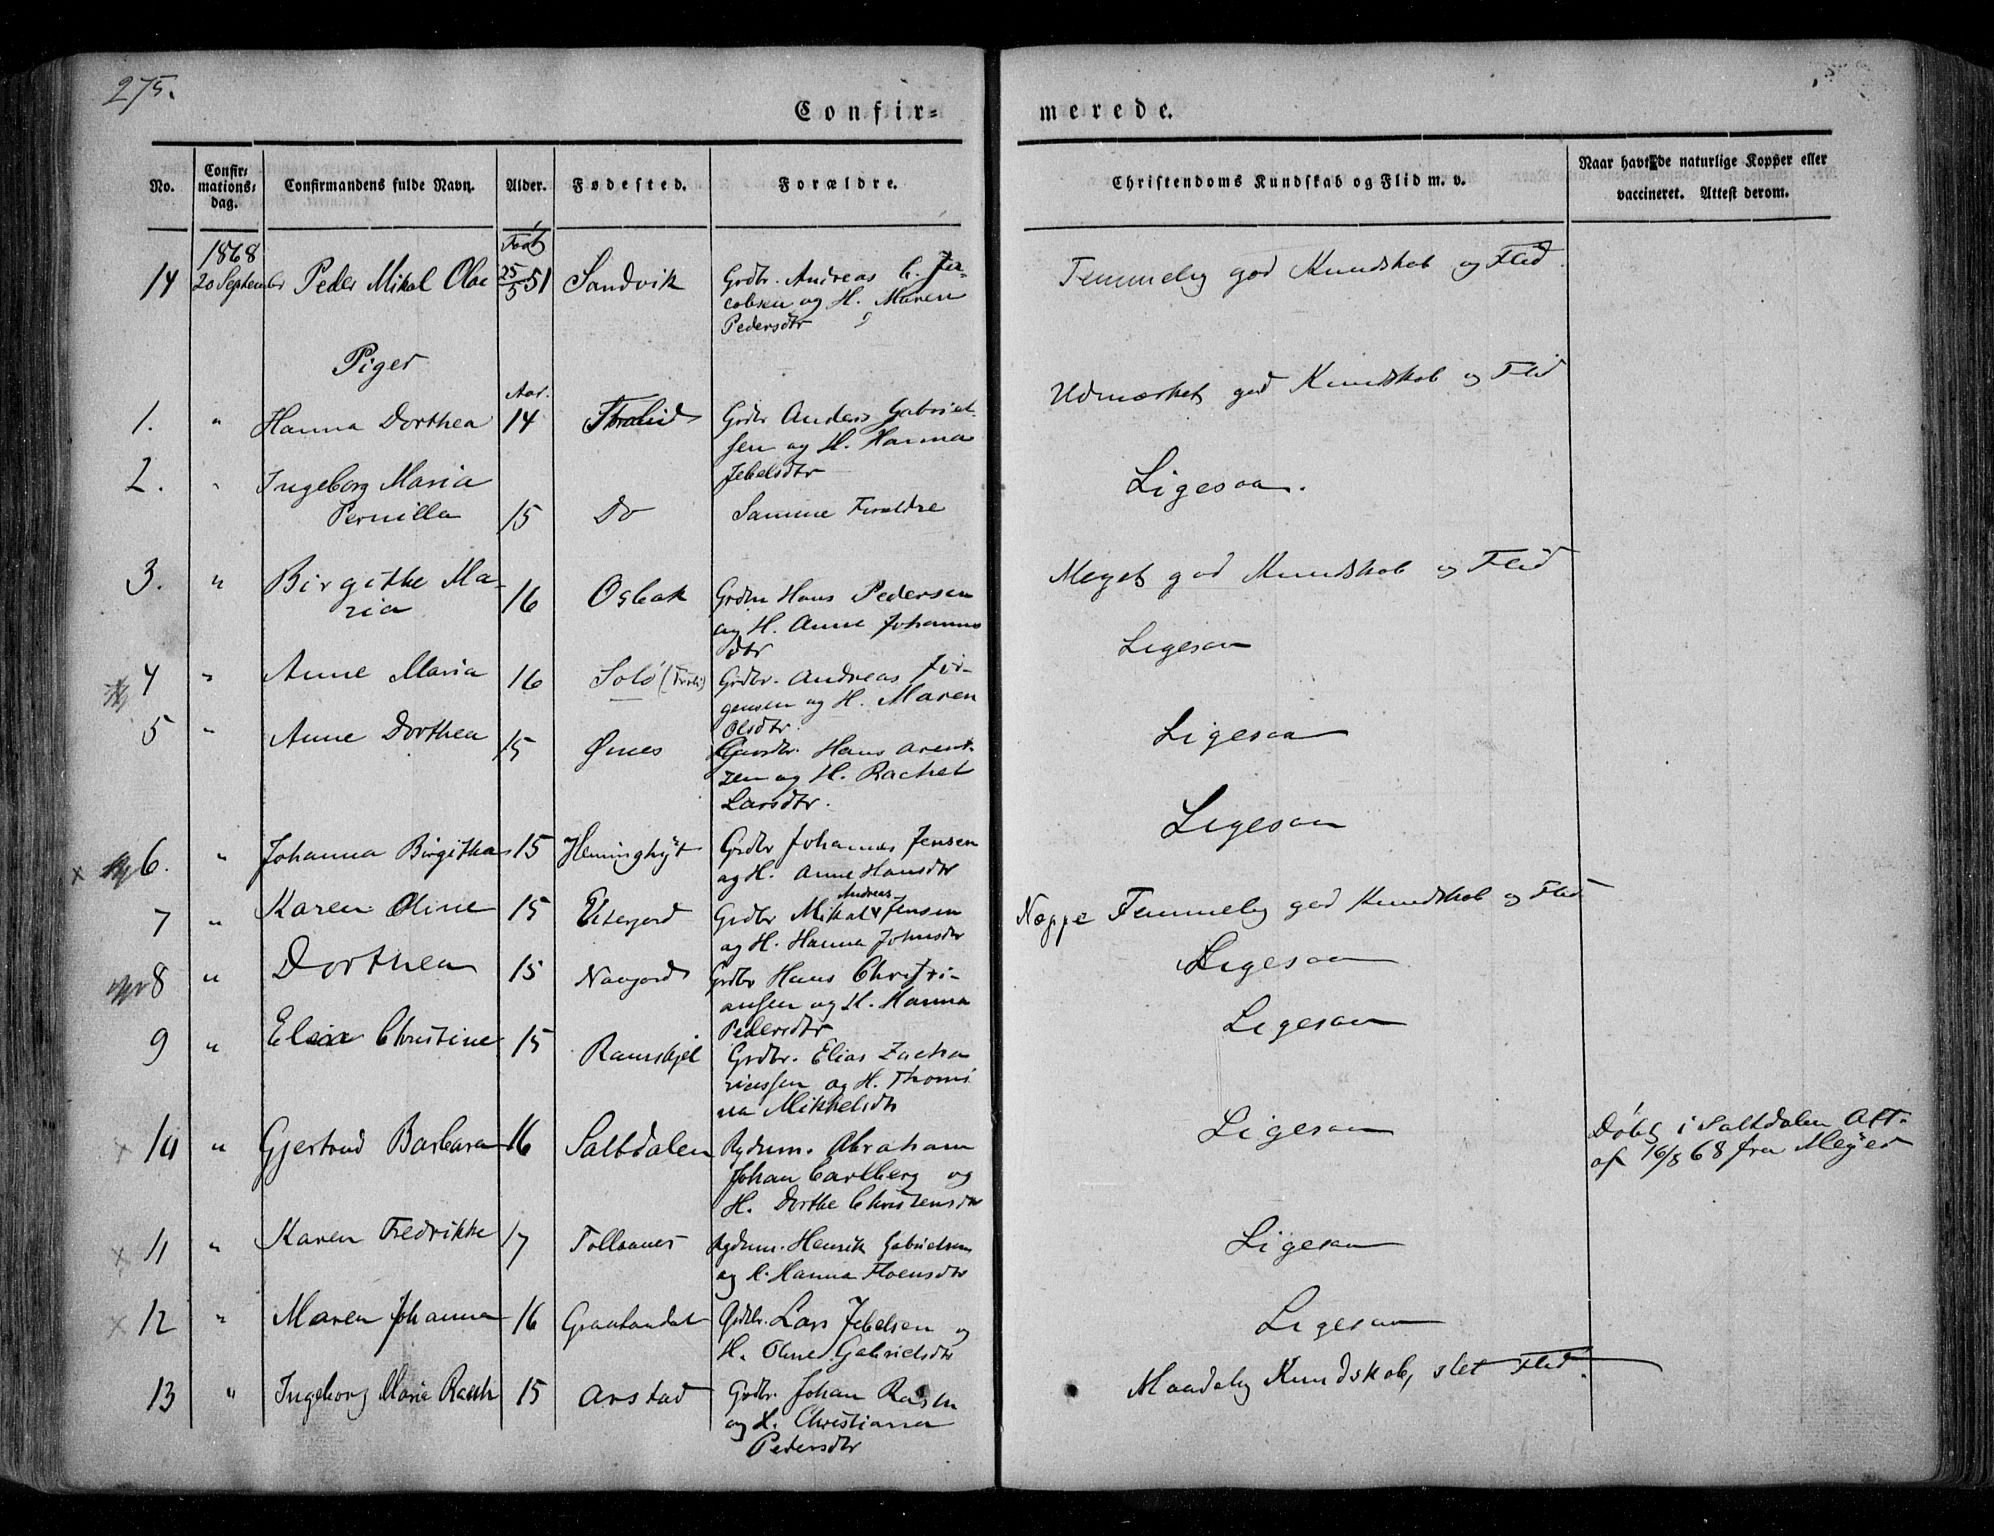 275.
Confir=
merede.
No.
Confir-
mations-
dag.
Confirmandens fulde Navn.
Alder.
Fødested.
Forældre.
Christendoms Kundskab og Flid m. v.
Naar havt de naturlige Kopper eller
vaccineret. Attest derom.
1868
14 20 September Peder Mikal Olai 25/5 51 Sandvik Grdbr. Andreas C. Ja-
cobsen og H. Maren
Pedersdtr
Temmelig god Kundskab og Flid.
Piger
Aar.
1. " Hanna Dorthea 14 Grdbr Anders Gabriel-
sen og H. Hanna
Jebelsdtr
Udmærket god Kundskab og Flid
2. " Ingeborg Maria
Pernilla 15 Do Samme Forældre
Ligesaa.
3. " Birgithe Ma-
ria 16 Osbak Grdbr Hans Pedersen
og H. Anne Johannes
dtr
Meget god Kundskab og Flid
4 " Anne Maria 16 Solø Grdbr. Andreas Jør-
gensen og H. Maren
Olsdtr
Ligesaa
5 " Anne Dorthea 15 Øines Gaardbr. Hans Arent-
zen og H. Rachel
Larsdtr.
Ligesaa
6. " Johanna Birgitha 15 Grdbr Johannes Jensen
og H. Anne Hansdtr
Ligesaa
7 " Karen Oline 15 Grdbr Mikal Andreas Jensen
og H. Hanna Johnsdtr
Næppe Temmelig god Kundskab og Flid
8 " Dorthea 15 Naugjord Grdbr Hans Christi-
ansen og H. Hanna
Pedersdtr
Ligesaa
9 " Elen Christine 15 Ramskjel Grdbr. Elias Zacha
riassen og H. Thomi
na Mikkelsdtr
Ligesaa
10 " Gjertrud Barbara 16 Saltdalen Rydnm. Abraham
Johan Carlberg og
H. Dorthe Christensdtr
Ligesaa
Døbt i Saltdalen Att.
af 16/8 68 fra Meyer
11 " Karen Fredrikke 17 Tollaanes Rydnm. Henrik Gabrielsen
og H. Hanna
Ligesaa
12 " Maren Johanna 16 Graataadal Grdbr. Lars Jebelsen og
H. Oline Gabrielsdtr
Ligesaa
13 " Ingeborg Marie 15 Arstad Grdbr. Johan
og H. Christiana
Pedersdtr
Maadelig Kundskab, slet Flid.